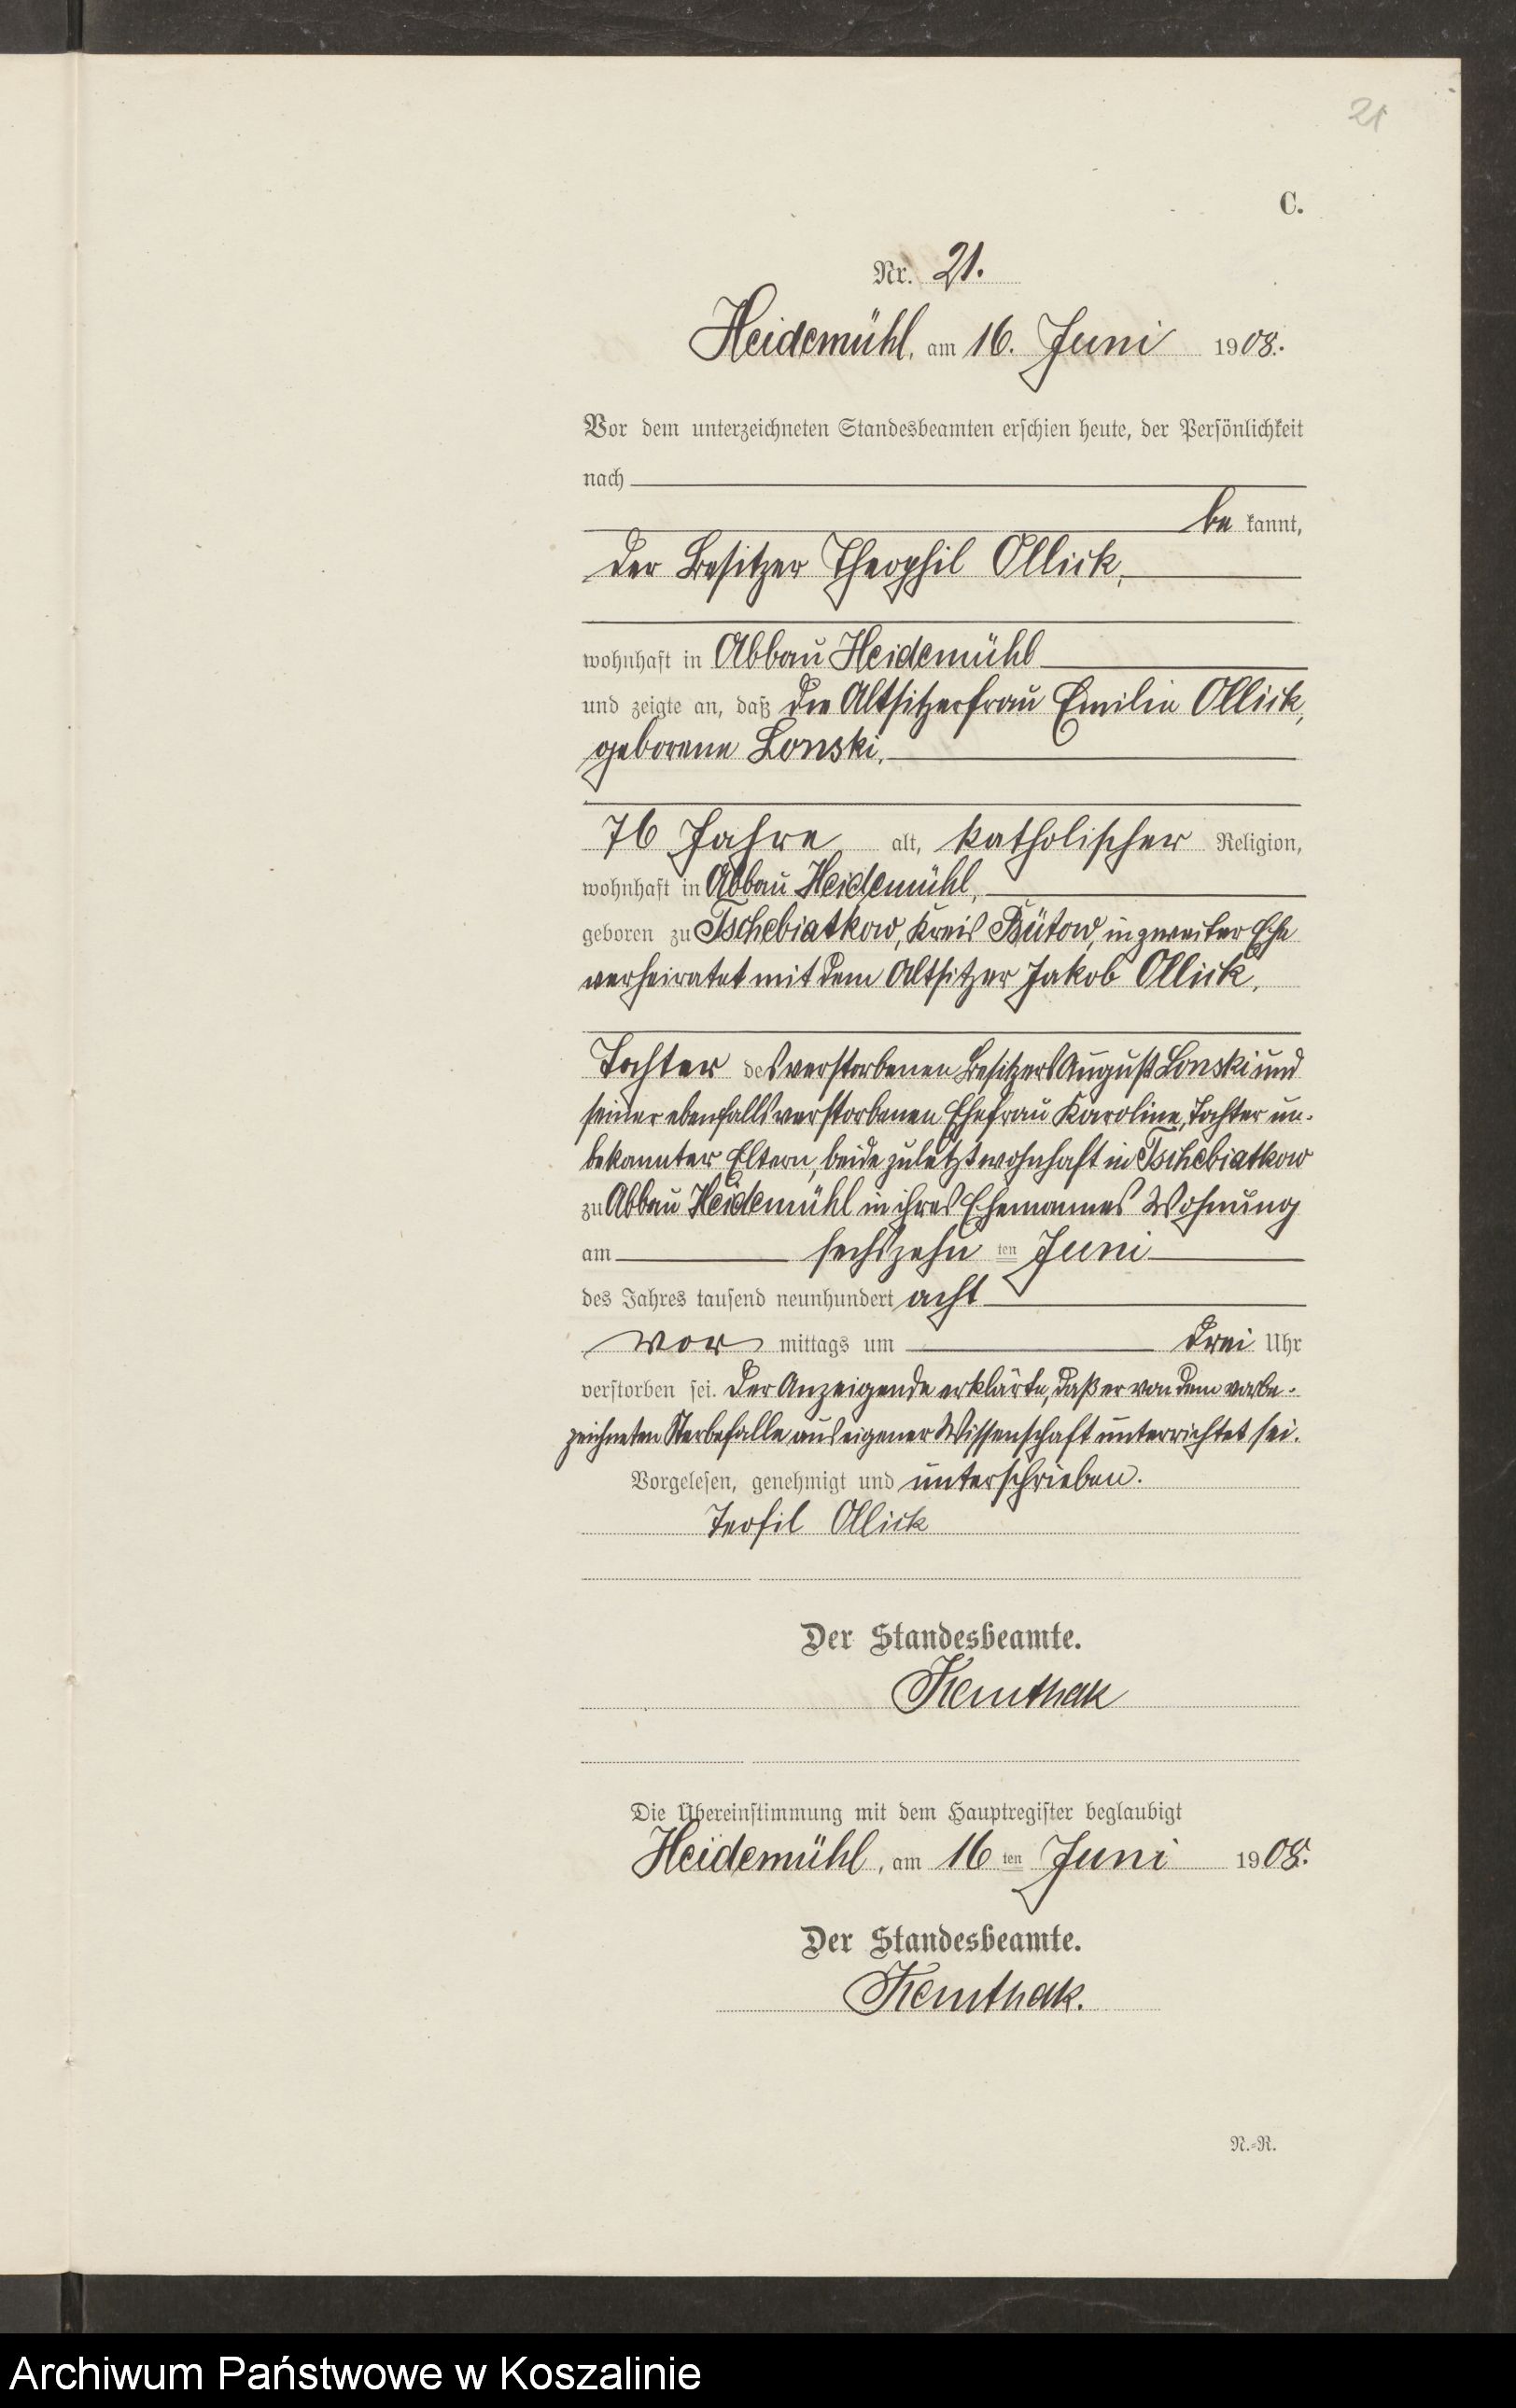 21
C.
Nr. 21.
Heidemühl, am 16. Juni 1908.
Vor dem unterzeichneten Standesbeamten erschien heute, der Persönlichkeit
nach
be kannt,
der Besitzer Theophil Ollick,
wohnhaft in Abbau Heidemühl
und zeigte an, daß die Altsitzerfrau Emilie Ollick,
geborene Lonski,
76 Jahre alt, katholischer Religion,
wohnhaft in Abbau Heidemühl,
geboren zu Tschebiatkow, Kreis Bütow, in zweiter Ehe
verheiratet mit dem Altsitzer Jakob Ollick,
Tochter des verstorbenen Besitzers August Lonski und
seiner ebenfalls verstorbenen Ehefrau Karoline, Tochter un-
bekannter Eltern, beide zuletzt wohnhaft in Tschebiatkow
zu Abbau Heidemühl in ihres Ehemannes Wohnung
am sechszehn ten Juni
des Jahres tausend neunhundert acht
vor mittags um drei Uhr
verstorben sei. Der Anzeigende erklärte, daß er von dem vorbe-
zeichneten Sterbefalle aus eigener Wissenschaft unterrichtet sei.
Vorgelesen, genehmigt und unterschrieben.
Teofil Ollick
Der Standesbeamte.
Die Übereinstimmung mit dem Hauptregister beglaubigt
Heidemühl, am 16 ten Juni 1908.
Der Standesbeamte.
N.-R.
Archiwum Państwowe w Koszalinie